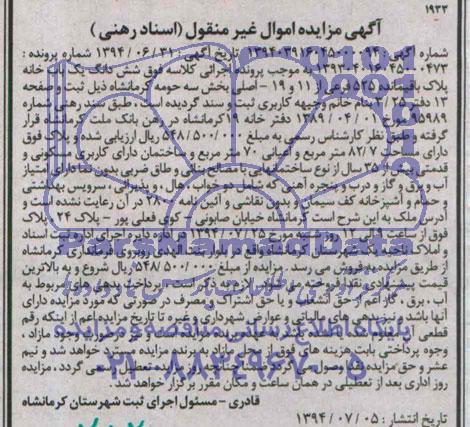 ۱۹۳۳
آگهی مزایده اموال غیر منقول (اسناد رهنی)
شماره آگهی: تاریخ آگهی: ۱۳۹۴/۰۶/۳۱ شماره پرونده:
به موجب پرونده اجرائی کلاسه فوق شش دانگ یک باب خانه
پلاک باقیمانده ۵۳۵ فرعی از ۱۱ و ۱۹ - اصلی بخش سه حومه کرمانشاه ذیل ثبت و صفحه
۱۳ دفتر بنام خانم وجیهه کاربری ثبت و سند گردیده است، طبق سند رهنی شماره
۹۵۹۸۹ مورخ ۱۳۸۹/۰۴/۰۱ دفتر خانه ۱۹ کرمانشاه در رهن بانک ملت کرمانشاه قرار
گرفته و طبق نظر کارشناس رسمی به مبلغ ریال ارزیابی شده و پلاک فوق
دارای مساحت ۸۲/۷ متر مربع و اعیانی ۷۰ متر مربع و ساختمان دارای کاربری مسکونی و
قدمتی بیش از ۳۵ سال از نوع ساختمانهایی با مصالح بنائی و طاق ضربی بدون نما دارای امتیاز
آب و برق و گاز و درب و پنجره آهنی که شامل دو خواب، هال، و پذیرائی، سرویس بهداشتی
و حمام و آشپزخانه کف سیمانی و بدون نقاشی و آئین نامه ۲۸۰۰ در آن رعایت نشده است و
آدرس ملک به این شرح است کرمانشاه خیابان صابونی - کوی فعلی پور - پلاک ۲۴ پلاک
فوق از ساعت ۹ الی ۱۲ روز شنبه مورخ ۱۳۹۴/۰۷/۲۵ در اداره اجرای اسناد
و املاک ثبت شهرستان کرمانشاه واقع در بلوار شهید روبروی فرمانداری کرمانشاه
از طریق مزایده به فروش می رسد. مزایده از مبلغ ریال شروع و به بالاترین
قیمت پیشنهادی نقدا فروخته می شود. لازم به ذکر است پرداخت بدهی های مربوط به
آب، برق، گاز اعم از حق انشعاب و یا حق اشتراک و مصرف در صورتی که مورد مزایده دارای
آنها باشد و نیز بدهی های مالیاتی و عوارض شهرداری و غیره تا تاریخ مزایده اعم از اینکه رقم
قطعی برنده مزایده است و نیز در صورت وجود مازاد،
وجوه پرداختی بابت هزینه های فوق از محل مازاد به برنده مزایده مسترد خواهد شد و نیم
عشر و حق مزایده نقدا وصول می گردد ضمنا چنانچه روز مزایده تعطیل رسمی گردد، مزایده
روز اداری بعد از تعطیلی در همان ساعت و مکان مقرر برگزار خواهد شد.
قادری - مسئول اجرای ثبت شهرستان کرمانشاه
تاریخ انتشار: ۱۳۹۴/۰۷/۰۵
ParsNamadData
پایگاه اطلاع رسانی مناقصه و مزایده
۰۲۱-۸۸۳۴۹۶۷۰-۵